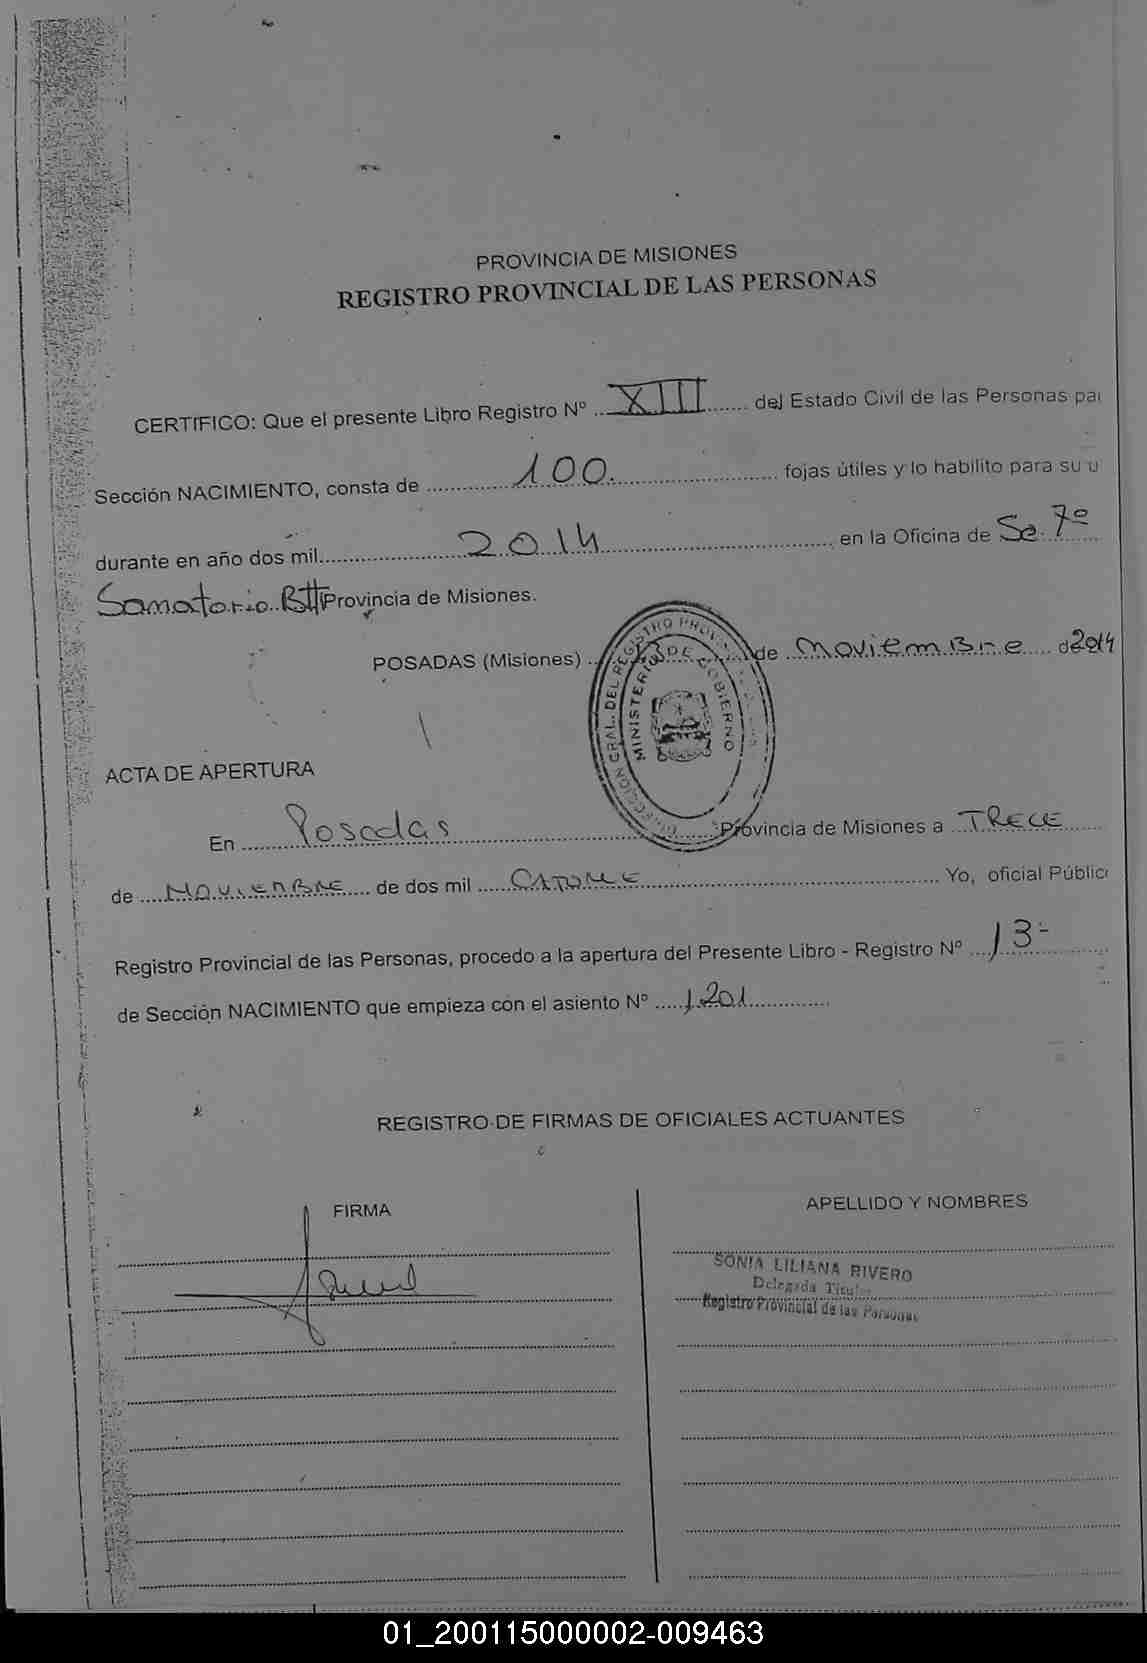 PROVINCIA DE MISIONES
REGISTRO PROVINCIAL DE LAS PERSONAS
CERTIFICO: Que el presente Libro Registro Nº XIII del Estado Civil de las Personas par
Sección NACIMIENTO, consta de 100. fojas útiles y lo habilito para su u
durante en año dos mil 2014 en la Oficina de Se. 7º
Sanatorio Provincia de Misiones.
POSADAS (Misiones) 13 de noviemBre de 2014
DIRECCION GRAL. DEL REGISTRO
MINISTERIO DE GOBIERNO
ACTA DE APERTURA
En Posadas Provincia de Misiones a TRECE
de de dos mil Yo, oficial Público
Registro Provincial de las Personas, procedo a la apertura del Presente Libro - Registro Nº 13-
de Sección NACIMIENTO que empieza con el asiento Nº 1201
REGISTRO DE FIRMAS DE OFICIALES ACTUANTES
FIRMA
APELLIDO Y NOMBRES
SONIA LILIANA RIVERO
Delegada Titular
Registro Provincial de las Personas
01_200115000002-009463